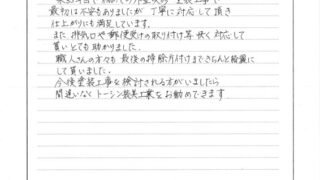 最初は不安もありましたが 丁寧に対応して頂き
仕上がりにも満足しています。
また 排気口や郵便受けの取り付け等 快く対応して
貰いとても助かりました。
職人さんの方々も 最後の掃除片付けまできちんと綺麗に
して貰いました。
今後塗装工事を検討される方がいましたら
間違いなくトーシン装美工業をお勧めできます